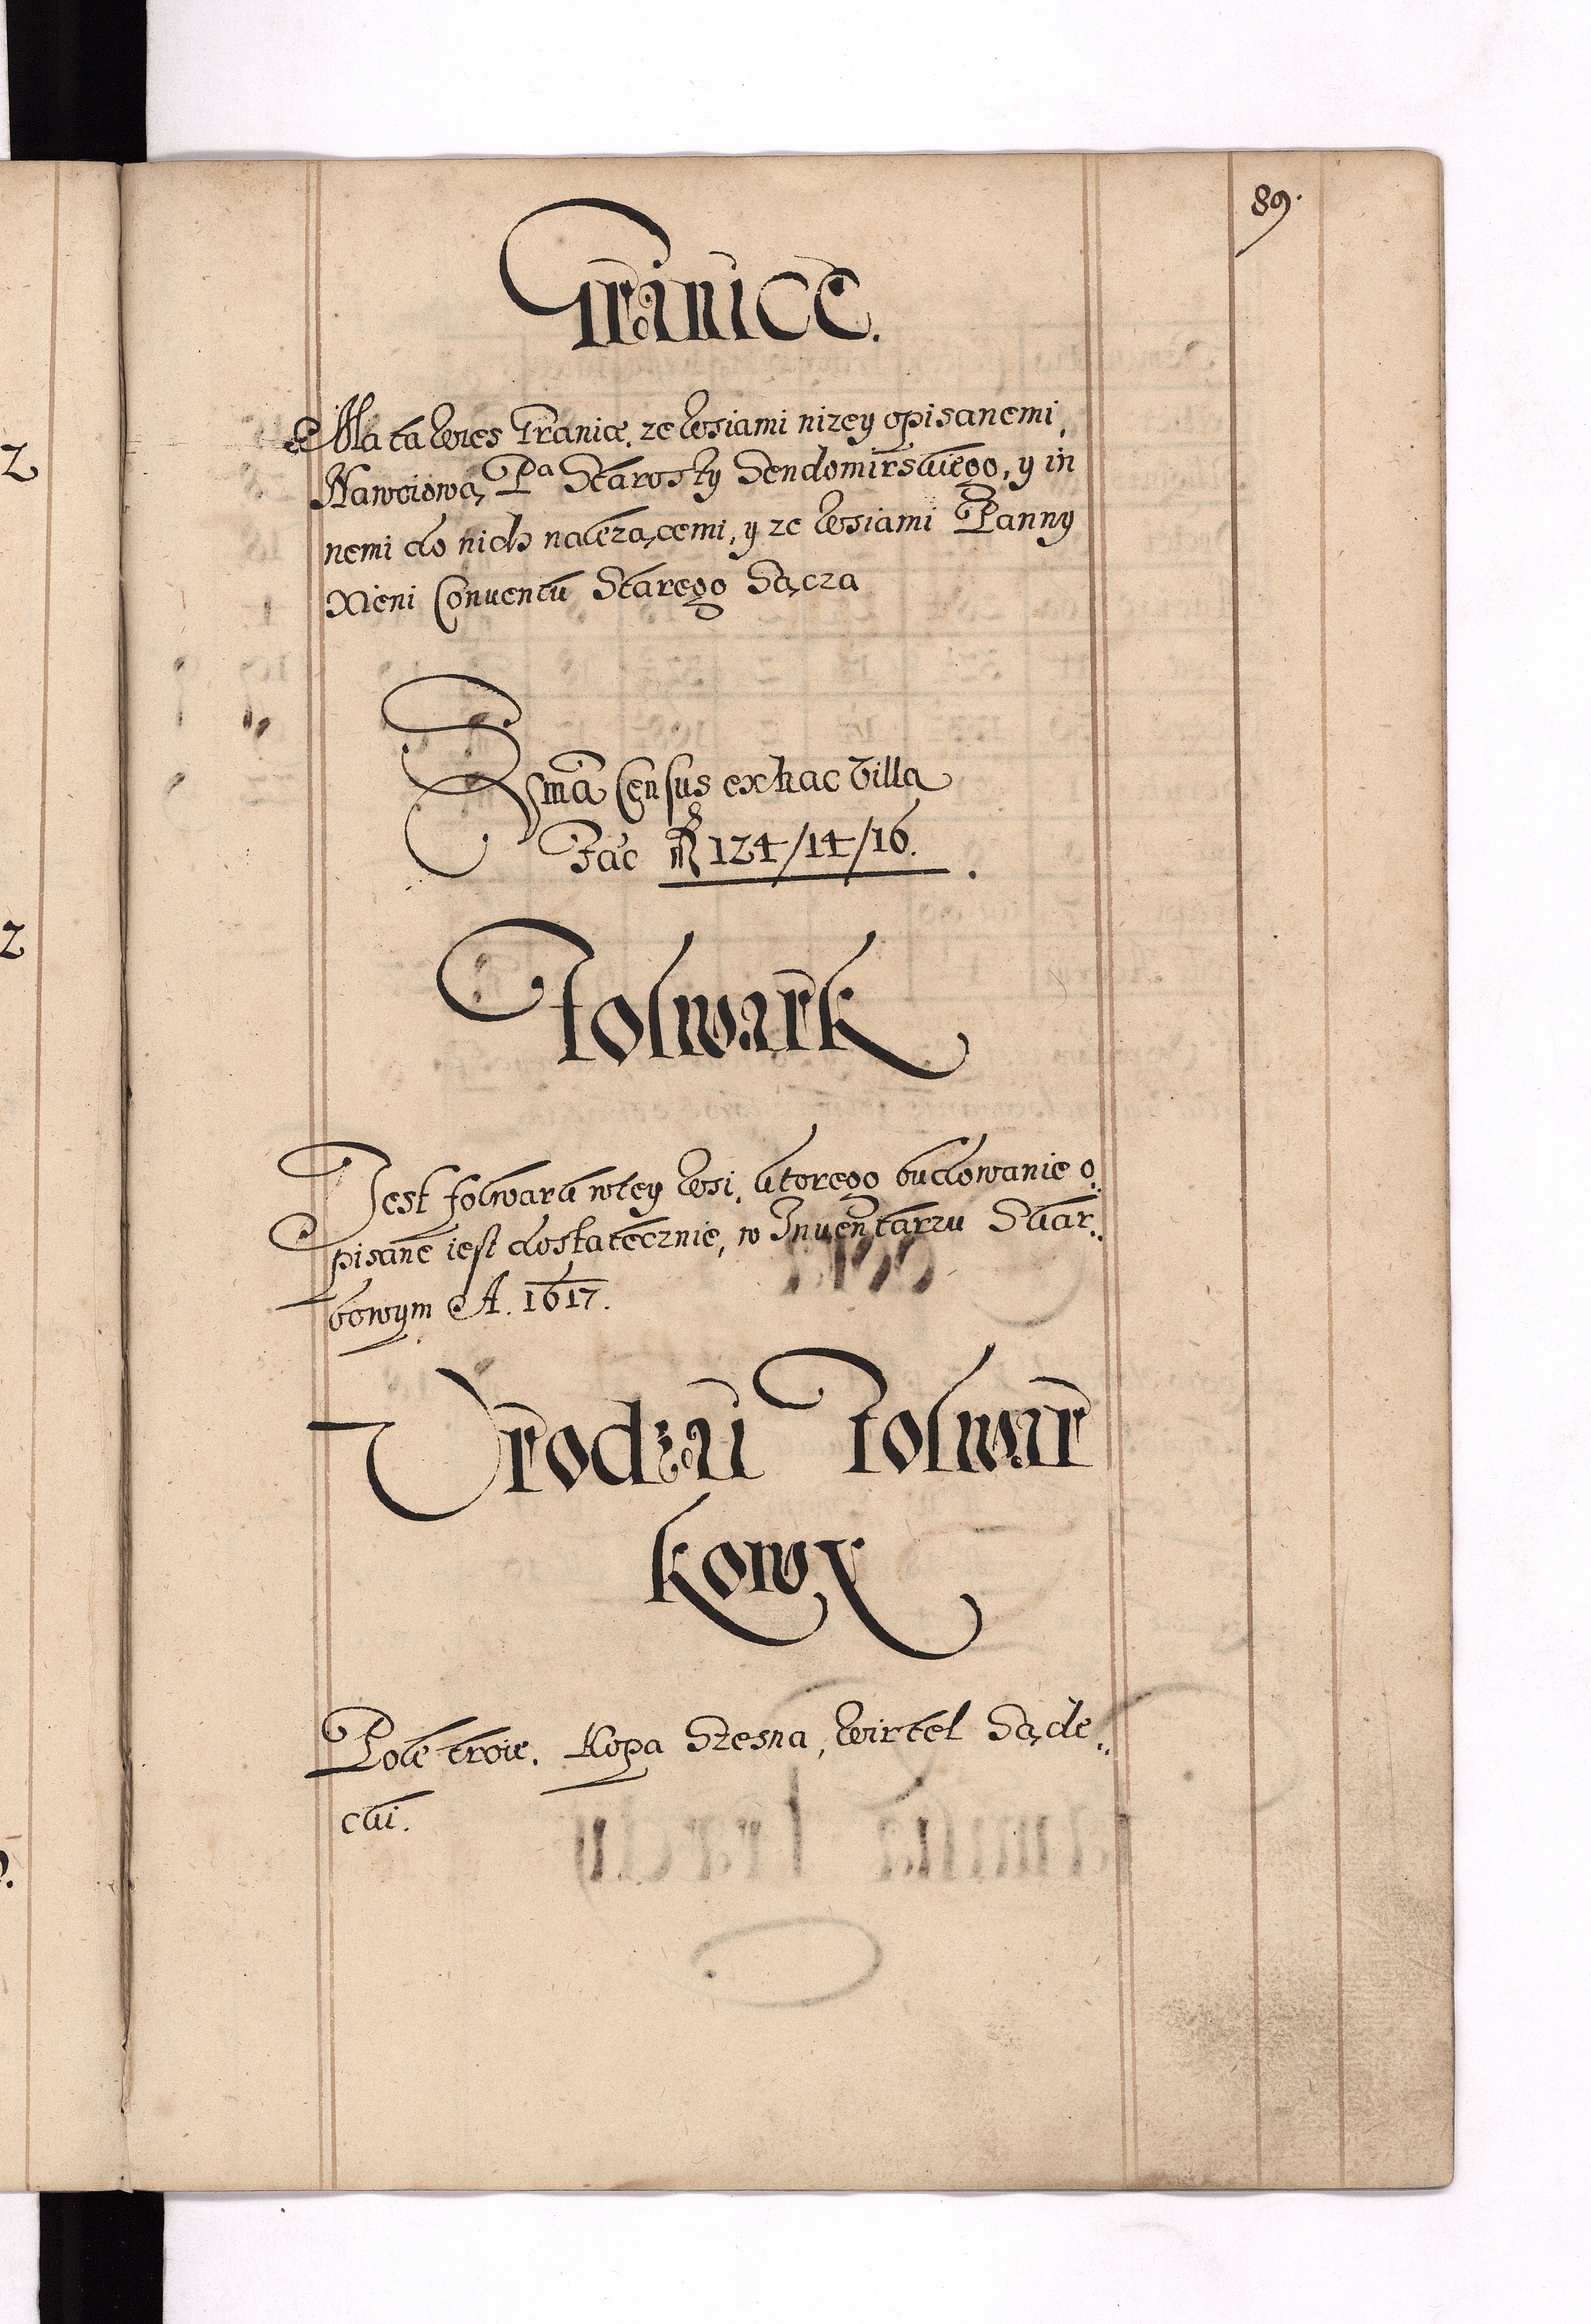 89.
Granice.
Ma ta Wies Granice, ze Wsiami nizey opisanemi,
Nawoiową Pa Starosty Sendomirskiego, y in
nemi do nich nalezącemi, y ze Wsiami Panny
Xieni Conventu Starego Sącza
Sma Census ex hac Villa
Fac 124/14/16.
Folwark
Jest folwark w tey Wsi, ktorego budowanie o..
pisane iest dostatecznie, w Inuentarzu Skar..
bowym A. 1617.
Vrodzai Folwar
kowy
Pole troie. Kopa Szesna, Wirtel Sąde..
cki.